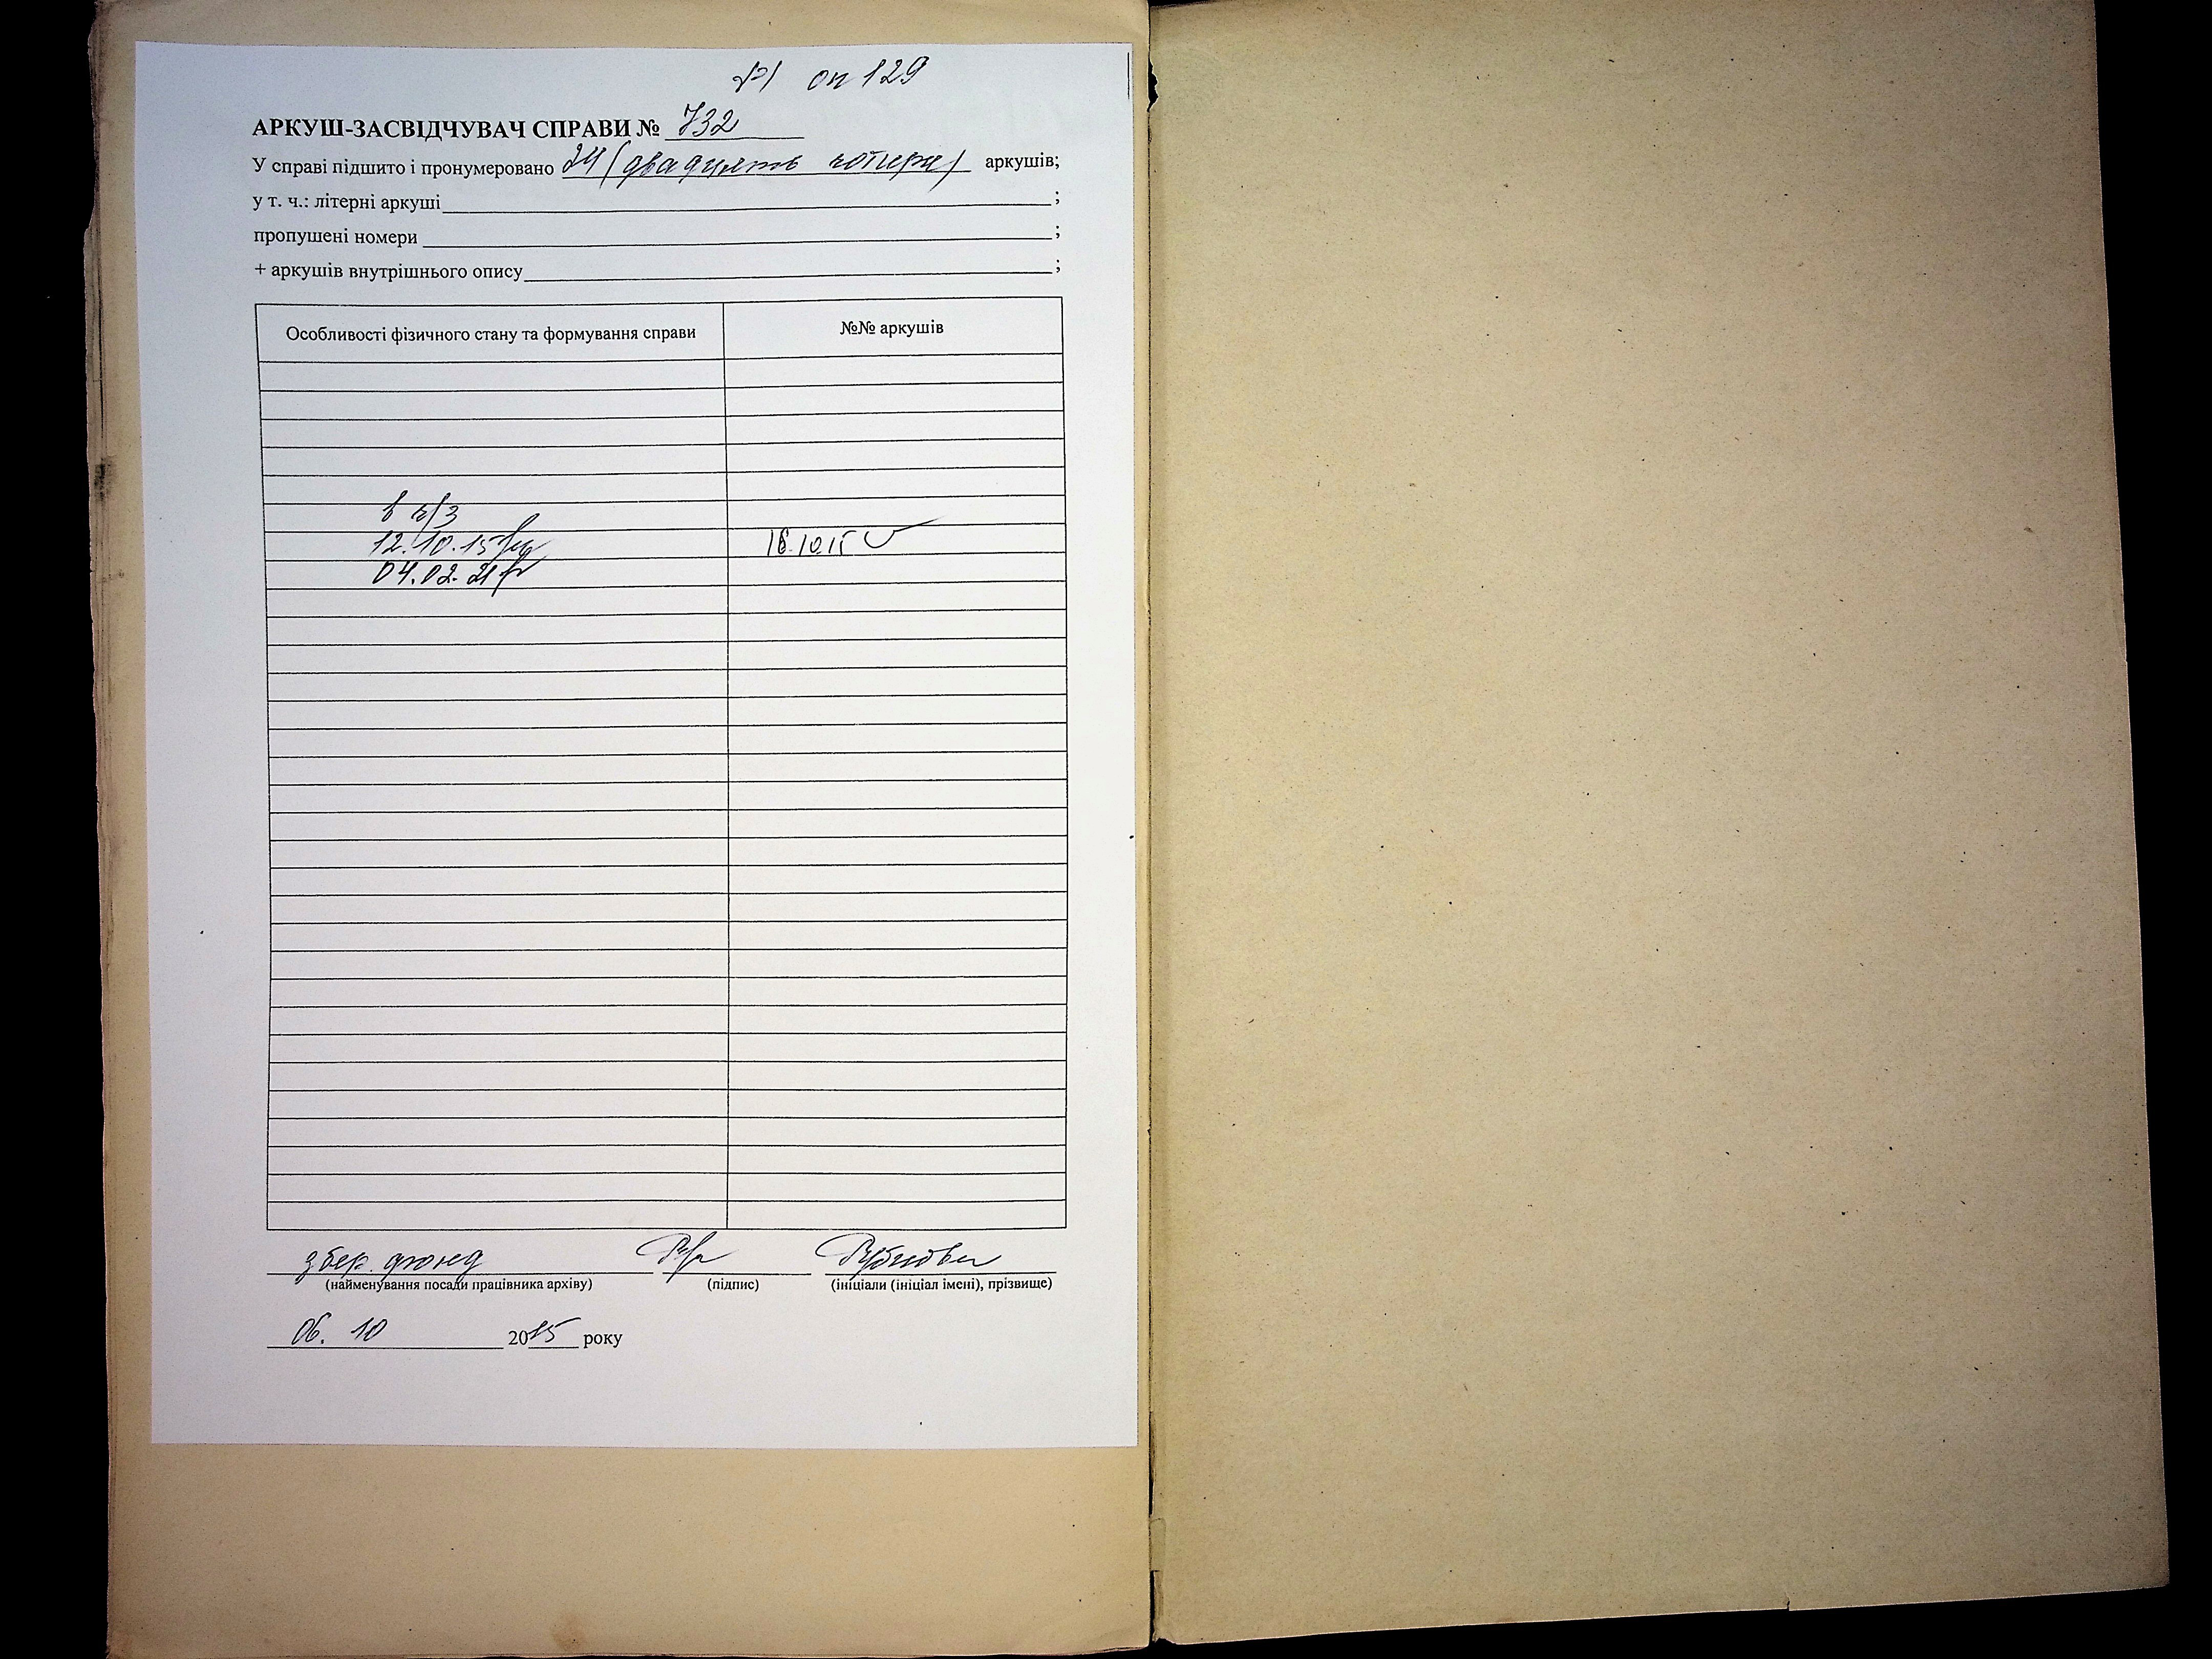 оп 129
АРКУШ-ЗАСВІДЧУВАЧ СПРАВИ № 732
У справі підшито і пронумеровано 24 (двадцять чотири) аркушів;
у т. ч.: літерні аркуші ;
пропущені номери ;
+ аркушів внутрішнього опису ;
Особливості фізичного стану та формування справи №№ аркушів
в ч/з
12.10.15 16.10.15
04.02.21
збер. фонд
(найменування посади працівника архіву) (підпис) (ініціали (ініціал імені), прізвище)
06. 10 2015 року